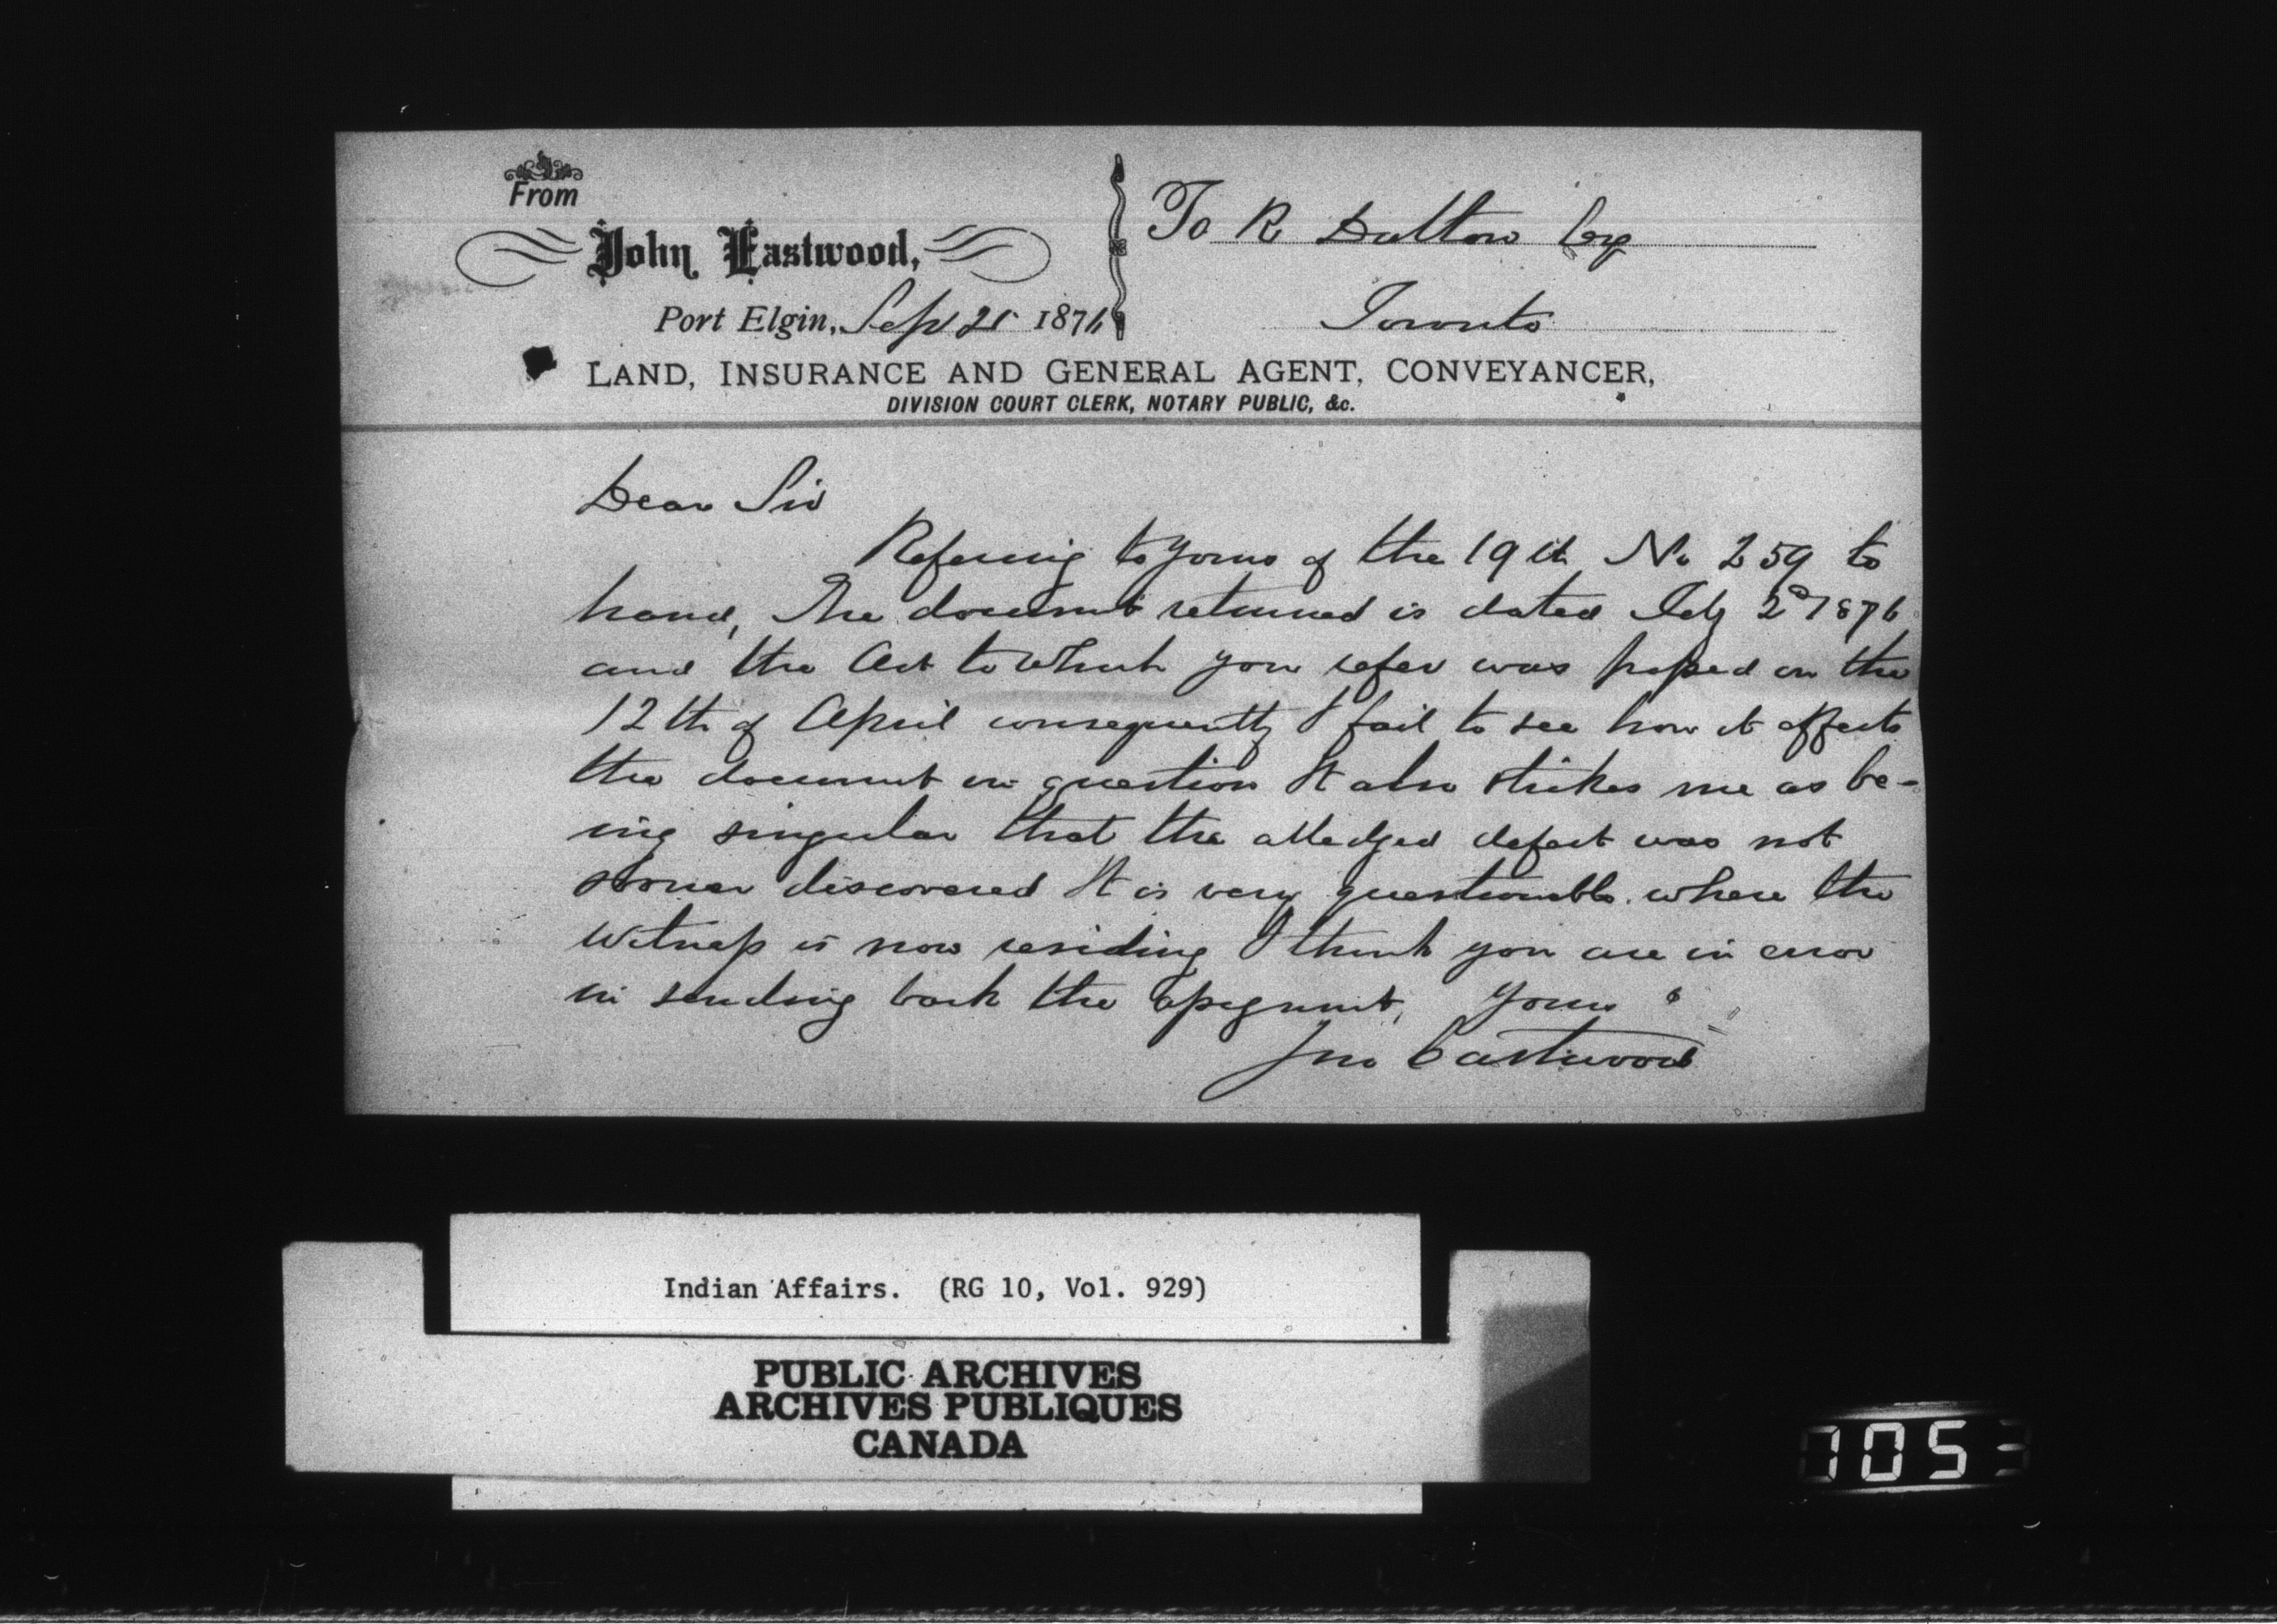 From
John Eastwood,
Port Elgin, Sept 21 1876
To R Dalton Esq
Toronto
LAND, INSURANCE AND GENERAL AGENT, CONVEYANCER,
DIVISION COURT CLERK, NOTARY PUBLIC, &c.
Dear Sir
Referring to yours of the 19th No 259 to
hand, The document returned is dated Feby 2d 1876
and the Act to which you refer was passed on the
12th of April consequently I fail to see how it affects
the document in question It also strikes me as be-
ing singular that the alledged defect was not
sooner discovered It is very questionable where the
Witness is now residing I think you are in error
in sending back the assignment, Yours "
Jno Eastwood
Indian Affairs. (RG 10, Vol. 929)
PUBLIC ARCHIVES
ARCHIVES PUBLIQUES
CANADA